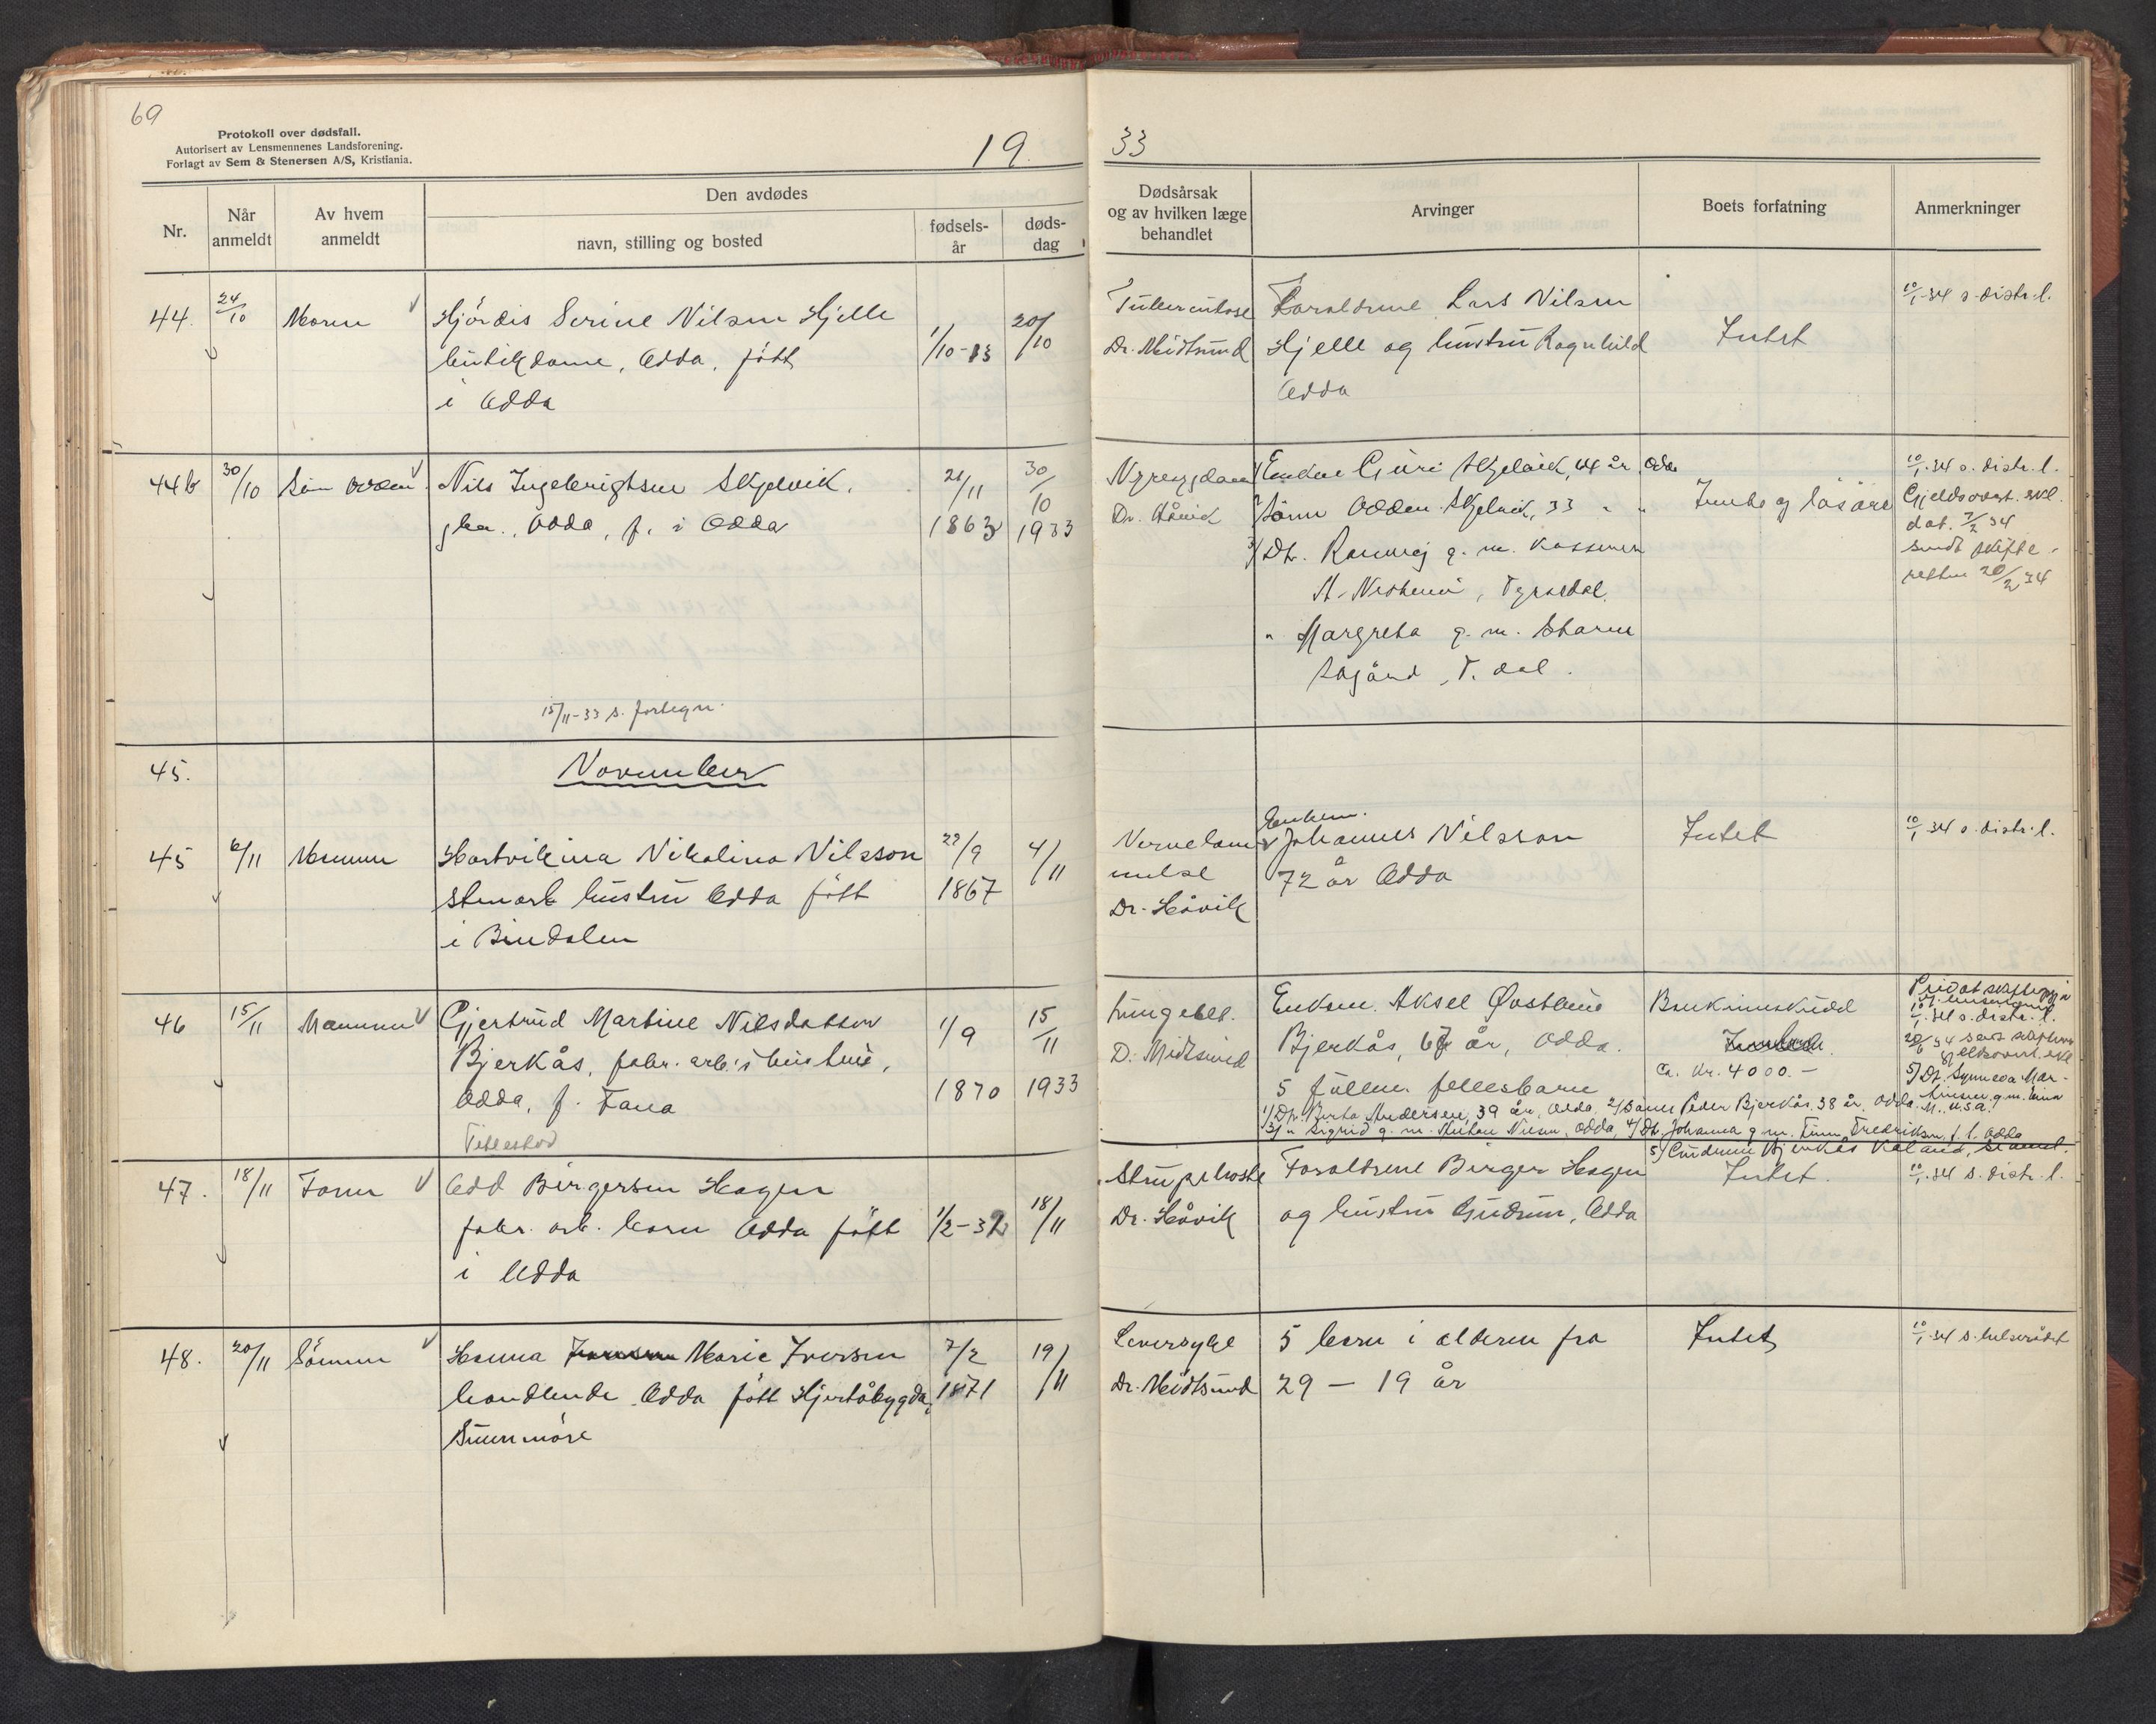 69
Protokoll over dødsfall.
Autorisert av Lensmennenes Landsforening.
Forlagt av Sem & Stenersen A/S, Kristiania.
19
33
Nr.
Når anmeldt
Av hvem anmeldt
Den avdødes
navn, stilling og bosted
fødsels-år
døds-dag
Dødsårsak og av hvilken læge behandlet
Arvinger
Boets forfatning
Anmerkninger
44. 24/10 Hjördis Serine Nilsen Hjelle 1/10-13 20/10
butikdame, Odda, fött
i Odda
Tuberculose
Dr. Midtsund
Foreldrene Lars Nilsen
Hjelle og hustru Ragnhild
Odda
Intet
10/1-34 s. distr. l.
44b 30/10 Sön Odden Nils Ingebrigtsen Skjelvik, 21/11 1863 30/10 1933
gba., Odda, f. i Odda
15/11-33 s. fortegn.
Nyresygdom
Dr. Håvik
1/ Enken Guri Skjelvik, 64 år, Odda
2/ Sönn Odden Skjelvik, 33 " "
3/ Dt. Rannveig g. m.
Tyssedal.
" Margreta g. m.
T. dal.
Innbo og lösöre
10/1-34 s. distr. l.
Gjeldsovert. erkl.
dat. 7/2 34
sendt skifte-
retten 20/2 34
45.
November
45 6/11 Mannen Hartvikina Nikolina Nilsson 22/9 1867 4/11
stenarb hustru Odda fött
i Bindalen
Dr. Håvik
Enkem.
Johannes Nilsson
72 år Odda
Intet
10/1 34 s. distr. l.
46 15/11 Mannen Gjertrud Martine Nilsdatter 1/9 1870 15/11 1933
Bjerkås, fabr. arb.s hustru,
Odda, f. Fana
Lungebet.
D. Midtsund
Enkem. Aksel Østbein
Bjerkås, 67 år, Odda.
5 fullm. fellesbarn
1/ Dt. Berta Andersen, 39 år, Odda, 2/ Sönn Peder Bjerkås, 38 år, Odda
3/ " Sigrid g. m. Nilsen, Odda, 4/ Dt. Johanna g. m. Finn Fredriksen, f. l. Odda
5/ Gudrun Bjerkås
Bankinnskudd
Ca. Kr. 4000.-
10/1-34 s. distr. l.
5/ Dt. Synneva Mar-
M., U.S.A.
47. 18/11 Faren Odd Birgersen Hagen 1/2-32 18/11
fabr. arb. barn Odda fött
i Odda
Strupehoste
Dr. Håvik
Foreldrene Birger Hagen
og hustru Gudrun, Odda
Intet.
10/1-34 s. distr. l.
48. 20/11 Sönnen Hanna Marie Iversen 7/2 1871 19/11
handlende Odda fött Hjertåbygda,
Sunnmöre
Leversyke
Dr. Midtsund
5 barn i alderen fra
29 – 19 år
Intet
10/1-34 s. helserådet